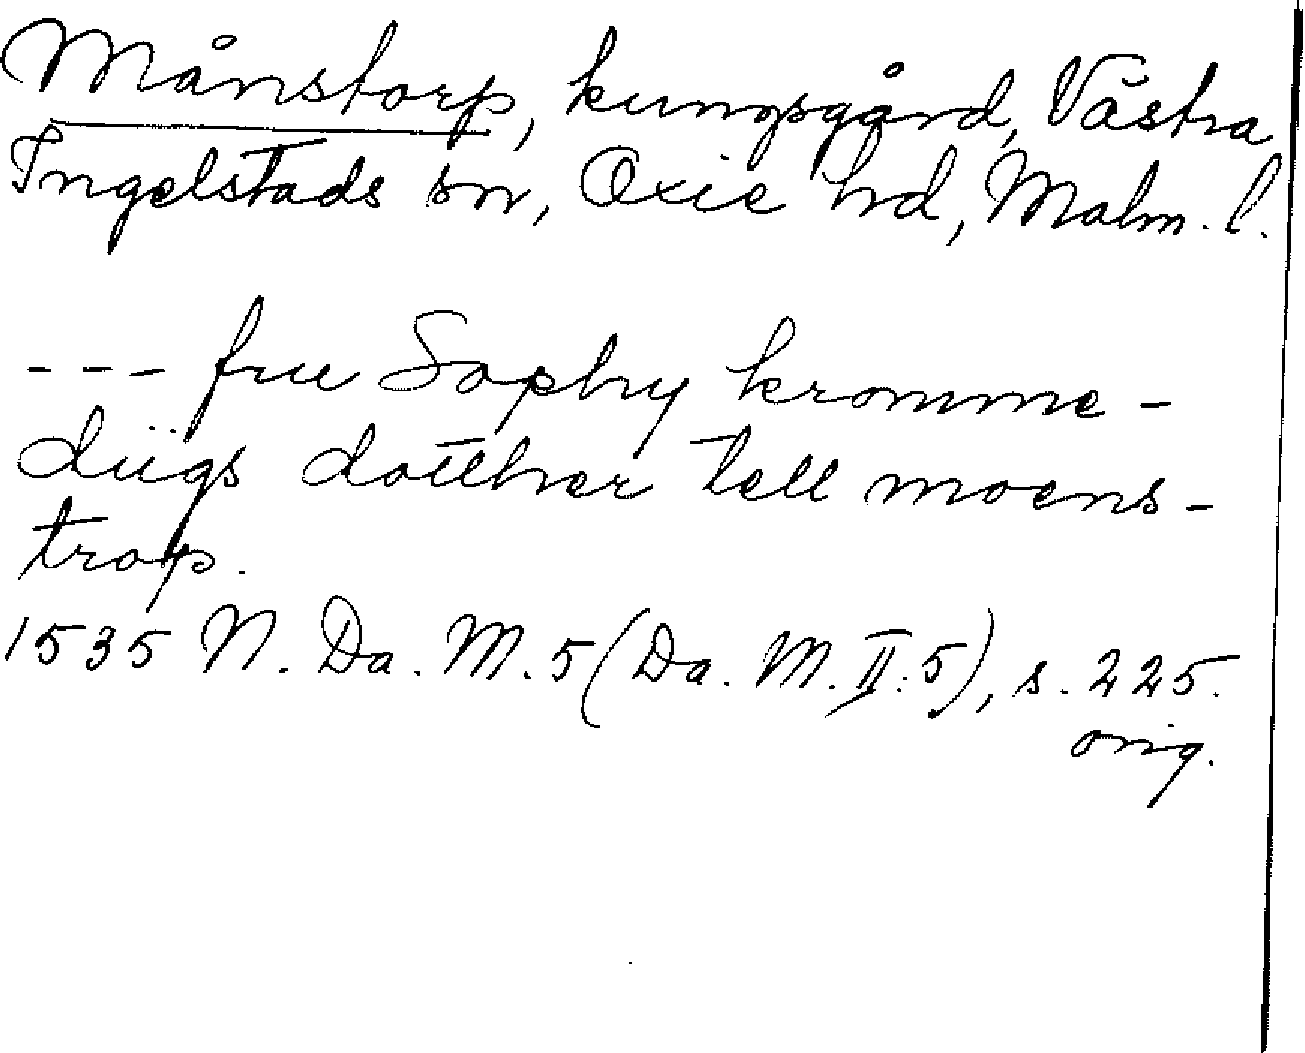 Månstorp, kungsgård, Västra
Ingelstads sn, Oxie hd, Malm. l.
--- frue Sophy kromme-
diigs dotther tell moens-
trop.
1535 N. Da. M. 5 (Da. M. II:5), s. 225.
orig.